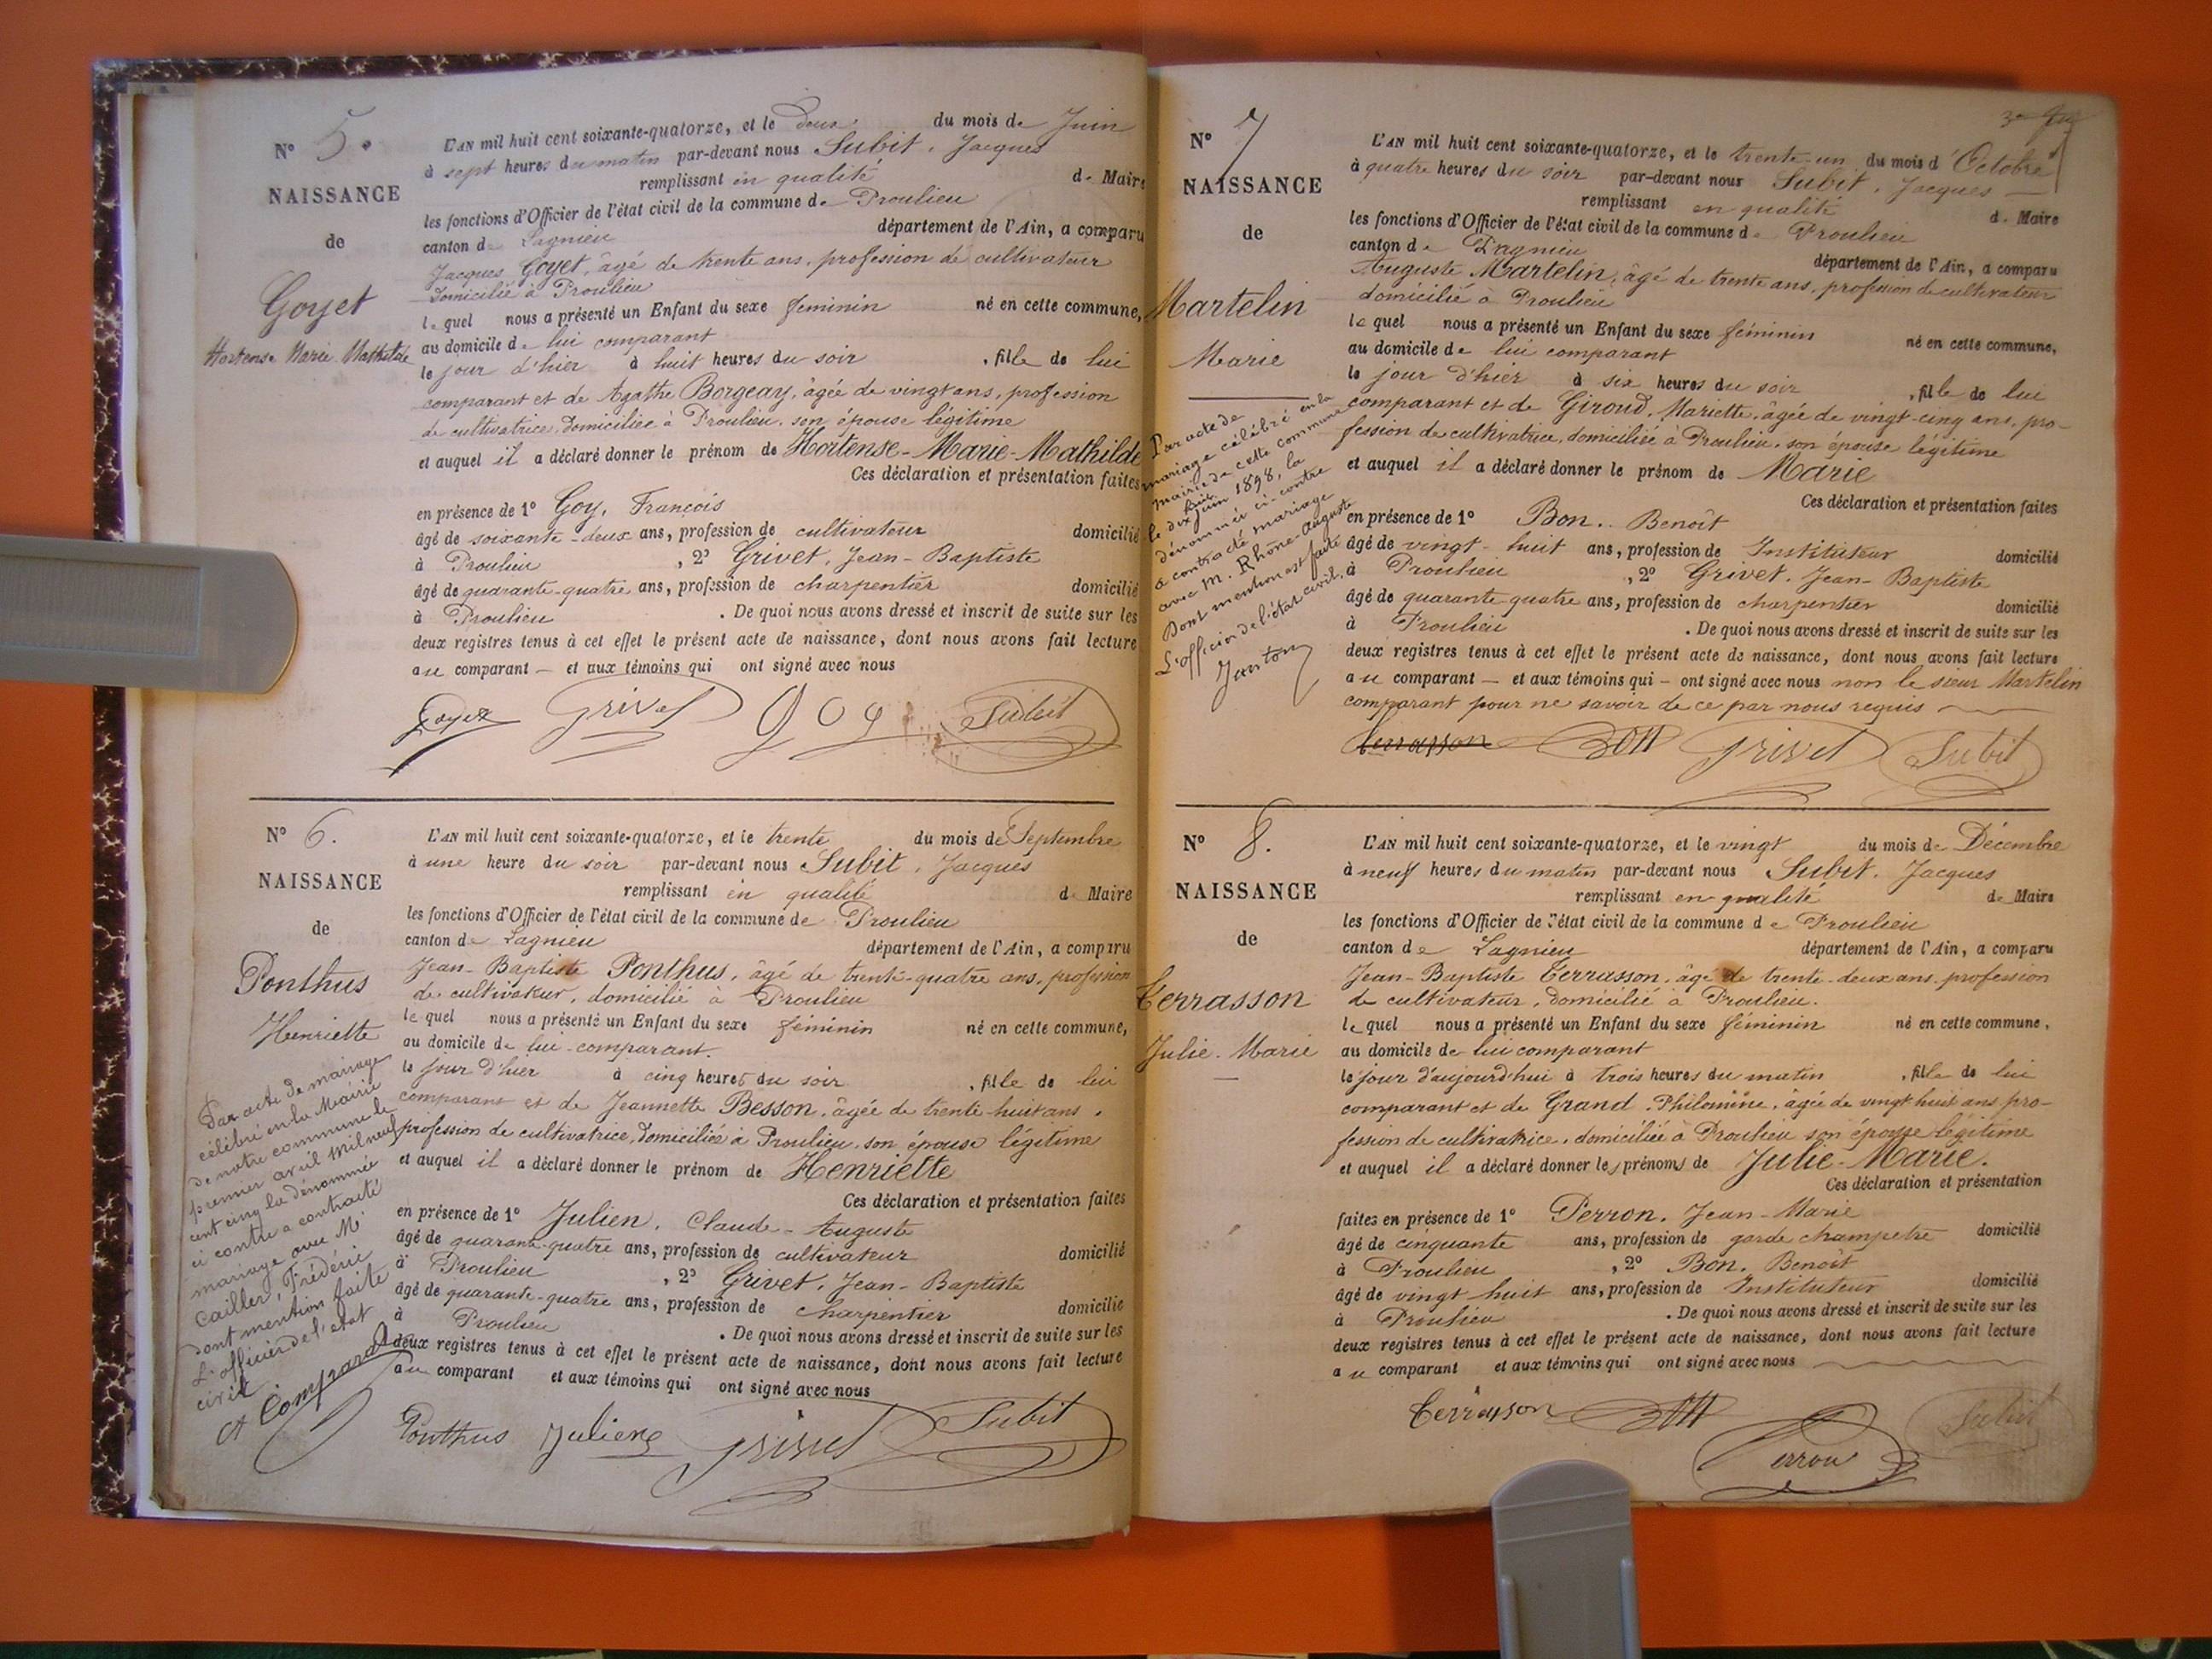 N° 5.
NAISSANCE
de
Goyet
Hortense Marie Mathilde
L'AN mil huit cent soixante-quatorze, et le deux du mois de Juin
à sept heures du matin par-devant nous Subit, Jacques
remplissant en qualité de Maire
les fonctions d'Officier de l'état civil de la commune de Proulieu
canton de Lagnieu département de l'Ain, a comparu
Jacques Goyet, âgé de trente ans, profession de cultivateur
domicilié à Proulieu
lequel nous a présenté un Enfant du sexe féminin né en cette commune,
au domicile de lui comparant
le jour d'hier à huit heures du soir, fille de lui
comparant et de Agathe Borgeay, âgée de vingt ans, profession
de cultivatrice, domiciliée à Proulieu, son épouse légitime
et auquel il a déclaré donner le prénom de Hortense-Marie-Mathilde
Ces déclaration et présentation faites
en présence de 1° Goy, François
âgé de soixante-deux ans, profession de cultivateur domicilié
à Proulieu, 2° Grivet, Jean-Baptiste
âgé de quarante-quatre ans, profession de charpentier domicilié
à Proulieu. De quoi nous avons dressé et inscrit de suite sur les
deux registres tenus à cet effet le présent acte de naissance, dont nous avons fait lecture
au comparant — et aux témoins qui ont signé avec nous
Goyet Grivet goy Subit
N° 6.
NAISSANCE
de
Ponthus
Henriette
Par acte de mariage
célébré en la Mairie
de notre commune le
premier avril mil neuf
cent cinq la dénommée
ci contre a contracté
mariage avec M.
Cailler, Frédéric
dont mention faite
L'officier de l'état
civil
L'AN mil huit cent soixante-quatorze, et le trente du mois de Septembre
à une heure du soir par-devant nous Subit, Jacques
remplissant en qualité de Maire
les fonctions d'Officier de l'état civil de la commune de Proulieu
canton de Lagnieu département de l'Ain, a comparu
Jean-Baptiste Ponthus, âgé de trente-quatre ans, profession
de cultivateur, domicilié à Proulieu
lequel nous a présenté un Enfant du sexe féminin né en cette commune,
au domicile de lui comparant.
le jour d'hier à cinq heures du soir, fille de lui
comparant et de Jeannette Besson, âgée de trente-huit ans,
profession de cultivatrice, domiciliée à Proulieu, son épouse légitime
et auquel il a déclaré donner le prénom de Henriette
Ces déclaration et présentation faites
en présence de 1° Julien, Claude-Auguste
âgé de quarante-quatre ans, profession de cultivateur domicilié
à Proulieu, 2° Grivet, Jean-Baptiste
âgé de quarante-quatre ans, profession de charpentier domicilié
à Proulieu. De quoi nous avons dressé et inscrit de suite sur les
deux registres tenus à cet effet le présent acte de naissance, dont nous avons fait lecture
au comparant et aux témoins qui ont signé avec nous
Ponthus Julien Grivet Subit
N° 7
NAISSANCE
de
Martelin
Marie
Par acte de
mariage célébré en la
mairie de cette commune
le dix huit juin 1898, la
dénommée ci-contre
a contracté mariage
avec M. Rhône-Auguste
Dont mention est faite
L'officier de l'état civil,
L'AN mil huit cent soixante-quatorze, et le trente-un du mois d'Octobre
à quatre heures du soir par-devant nous Subit, Jacques —
remplissant en qualité de Maire
les fonctions d'Officier de l'état civil de la commune de Proulieu
canton de Lagnieu département de l'Ain, a comparu
Auguste Martelin, âgé de trente ans, profession de cultivateur
domicilié à Proulieu
lequel nous a présenté un Enfant du sexe féminin né en cette commune,
au domicile de lui comparant
le jour d'hier à six heures du soir, fille de lui
comparant et de Giroud, Mariette, âgée de vingt-cinq ans, pro-
fession de cultivatrice, domiciliée à Proulieu, son épouse légitime
et auquel il a déclaré donner le prénom de Marie
Ces déclaration et présentation faites
en présence de 1° Bon. Benoît
âgé de vingt-huit ans, profession de Instituteur domicilié
à Proulieu, 2° Grivet, Jean-Baptiste
âgé de quarante quatre ans, profession de charpentier domicilié
à Proulieu. De quoi nous avons dressé et inscrit de suite sur les
deux registres tenus à cet effet le présent acte de naissance, dont nous avons fait lecture
au comparant — et aux témoins qui — ont signé avec nous non le sieur Martelin
comparant pour ne savoir de ce par nous requis
Terrasson Bon Grivet Subit
N° 8.
NAISSANCE
de
Terrasson
Julie-Marie
L'AN mil huit cent soixante-quatorze, et le vingt du mois de Décembre
à neuf heures du matin par-devant nous Subit, Jacques
remplissant en qualité de Maire
les fonctions d'Officier de l'état civil de la commune de Proulieu
canton de Lagnieu département de l'Ain, a comparu
Jean-Baptiste Terrasson, âgé de trente-deux ans, profession
de cultivateur, domicilié à Proulieu.
lequel nous a présenté un Enfant du sexe féminin né en cette commune,
au domicile de lui comparant
le jour d'aujourd'hui à trois heures du matin, fille de lui
comparant et de Grand, Philomène, âgée de vingt huit ans, pro-
fession de cultivatrice, domiciliée à Proulieu son épouse légitime
et auquel il a déclaré donner les prénoms de Julie-Marie.
Ces déclaration et présentation
faites en présence de 1° Perron, Jean-Marie
âgé de cinquante ans, profession de garde champetre domicilié
à Proulieu, 2° Bon, Benoît
âgé de vingt huit ans, profession de Instituteur domicilié
à Proulieu. De quoi nous avons dressé et inscrit de suite sur les
deux registres tenus à cet effet le présent acte de naissance, dont nous avons fait lecture
au comparant et aux témoins qui ont signé avec nous
Terrasson Bon Subit
Perron